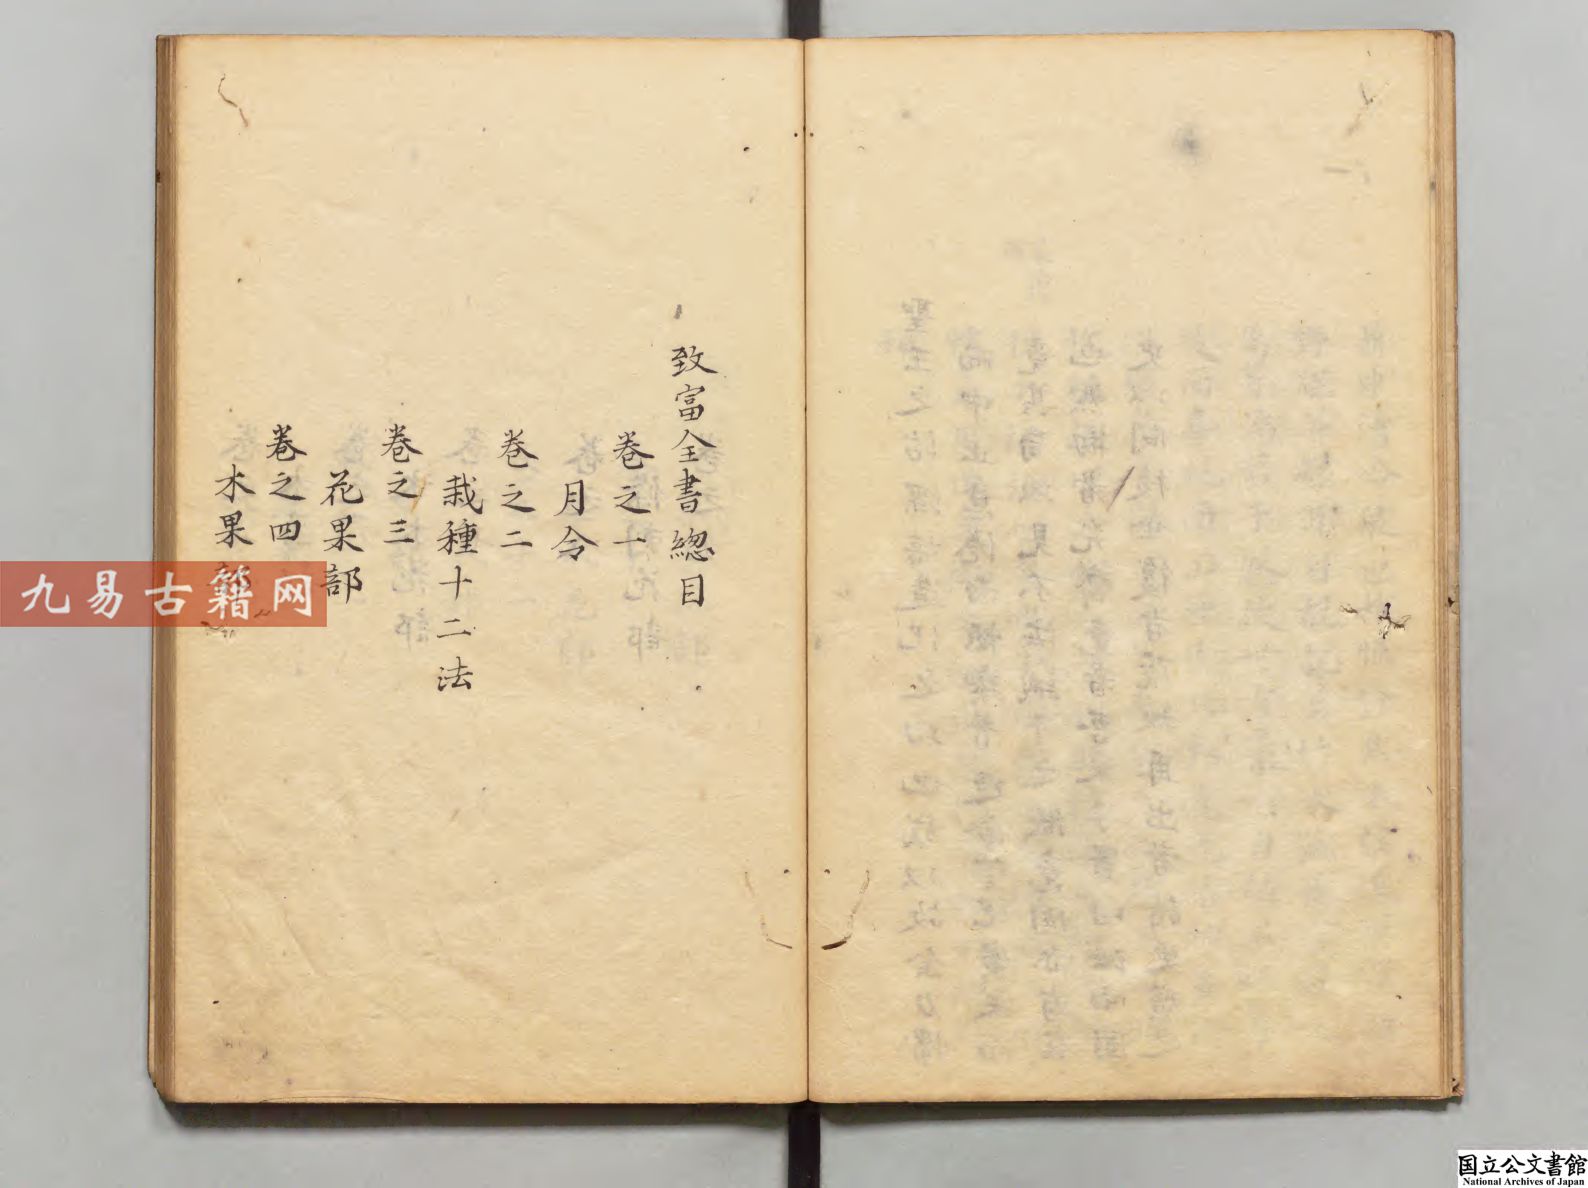 致富全書總目
卷之一
月令
卷之二
栽種十二法
卷之三
花果部
卷之四
木果部
九易古籍网
国立公文書館
National Archives of Japan